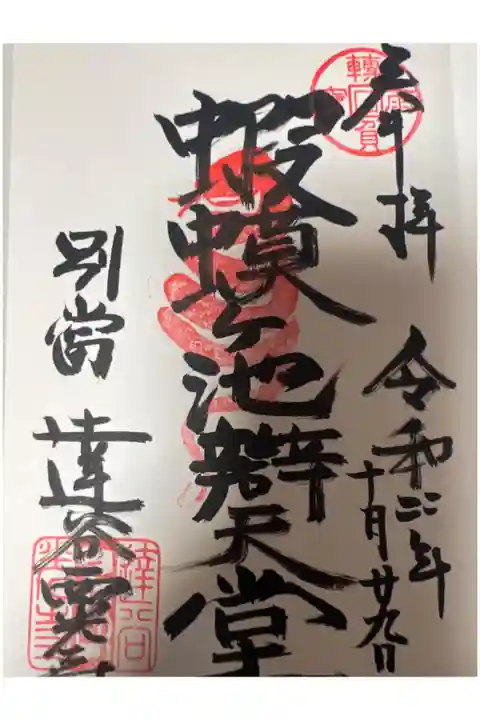 奉拝
令和二年
十月廿九日
蝦蟆ヶ池辯天堂
別當
達谷窟